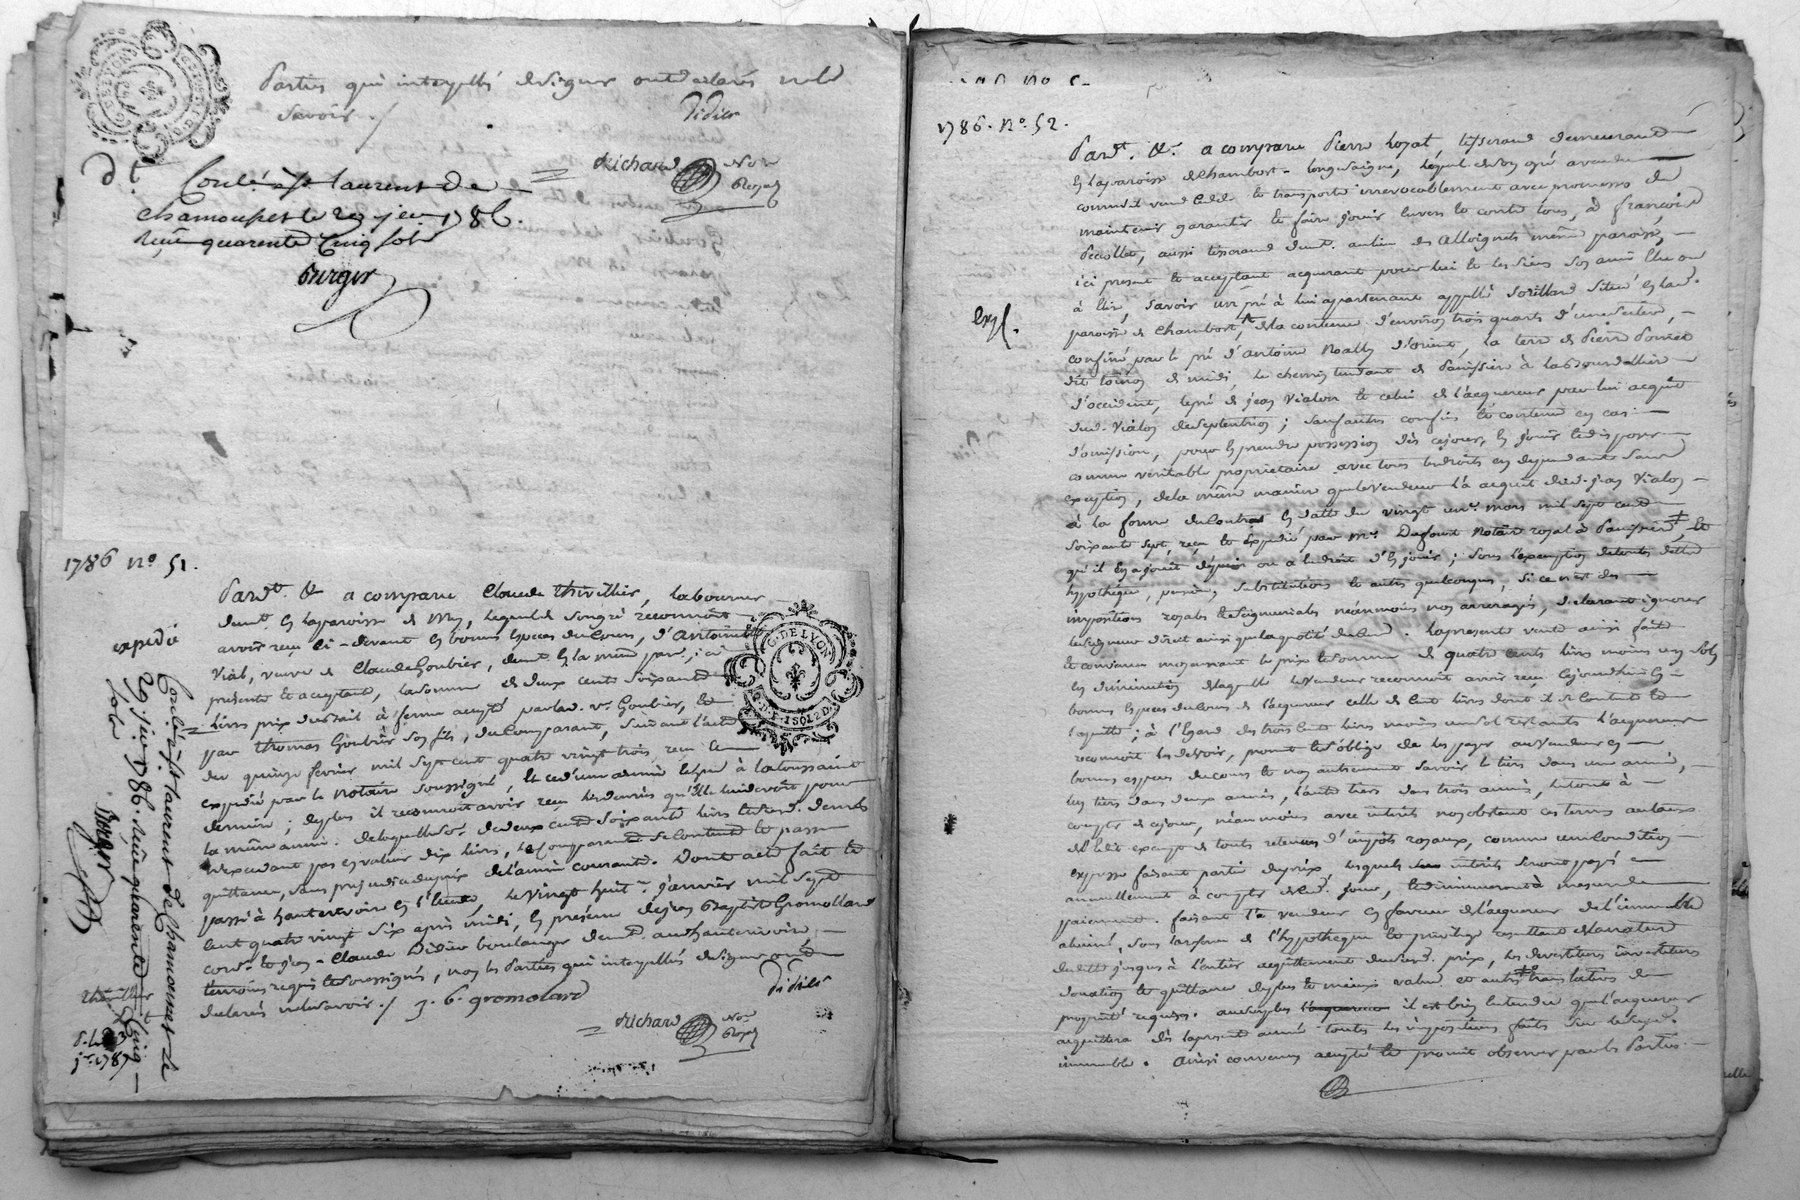 Parties qui interpellés de signer ont déclarés ne le
savoir ./.
Didier
Richard Nore
Royal
Conlé à st laurent de
chamousset le 29 jer 1786.
reçu quarente Cinq sols
Berger
1786 no 51.
Pardt. &c a comparu Claude thivillier, laboureur
demt. en la parroisse de Mey, lequel de son gré reconnoit
avoir reçu ci-devant en bonnes Especes du cours, d'antoinette
Vial, veuve de Claude Goubier, demt. en la meme parr. ici
présente et acceptant, la somme de deux cents soixante
livres prix du bail à ferme accepté par lad. ve. Goubier, et
par thomas Goubier son fils, du comparant, suivant l'acte
du quinze février mil sept cent quatre vingt trois, reçu et
expédié par le notaire soussigné, et ce d'une année échue à la toussaint
derniere; de plus il reconnoit avoir reçu les denrées qu'elle lui devoit pour
la même année. de laquelle so. de deux cents soixante livres et desd. denrées
n'excedant pas en valeur dix livres, le Comparant se contente et passe
quittance, sans préjudice du prix de l'année courante. Dont acte fait et
passé à hauterivoire en l'étude, le vingt huit janvier mil sept
cent quatre vingt six après midi, en présence de jean Baptiste Gromollard
cord. et jean-Claude Didier boulanger demt. au hauterivoire,
témoins requis et soussignés, non les parties qui interpellés de signer ont
déclarés ne le savoir ./. J. B. gromolard
Didier
Richard Nore
Royal
expedié
Conlé à st laurent de Chamousset le
29 jer 1786. reçu quarente Cinq
sols
Berger
jer 1787
G. DE LYON
1786. no. 52.
Pardt. &c. a comparu Pierre loyal, tisserand demeurant
en la paroisse de chambost-longessaigne, lequel de son gré a vendu
comme il vend cede et transporte irrevocablement avec promesse de
maintenir garantir et faire jouir envers et contre tous, à françois
aussi tisserand demt. au lieu des Alloignets même paroisse,
ici present et acceptant acquerant pour lui et les siens son ami élu ou
à élire, savoir un pré à lui appartenant appellé situé en lad.
paroisse de chambost, de la contenue d'environ trois quarts d'une
confiné par le pré d'antoine d'orient, la terre de Pierre
dit de midi, le chemin tendant de Panissiere à
d'occident, le pré de jean Vialon et celui de l'acquereur par lui acquit
dud. Vialon de septentrion; sauf autres confins et contenue en cas
d'omission, pour en prendre possession dès ce jour, en jouir et disposer
comme véritable proprietaire avec tous les droits en dependants sans
exception, de la même maniere que le vendeur l'a acquit dud. jean Vialon
à la forme du contrat en datte du vingt un mars mil sept cent
soixante sept, reçu et expédié par Me. Dufour Notaire royal à Panissiere, et
qu'il en a jouit depuis ou a le droit d'en jouir; sous l'exemption de toutes dettes
hypotheques, pensions, substitutions et autres quelconques, si ce n'est des
impositions royales et seigneuriales néanmoins non arreragés, declarant ignorer
le seigneur direct ainsi que la quotité du cens. la presente vente ainsi faite
et convenue moyennant le prix et somme de quatre cents livres moins un sol
en diminution de laquelle le vendeur reconnoit avoir reçu cejourdhui en
bonnes Especes du cours de l'acquereur celle de cent livres dont il se contente et
l'quitte; à l'égard des trois cents livres moins un sol restants l'acquereur
reconnoit les devoir, promet et s'oblige de les payer au vendeur en
bonnes especes du cours et non autrement savoir le tiers dans une année,
un tiers dans deux années, l'autre tiers dans trois années, le tout à
compter de ce jour, néanmoins avec intérets nonobstant ces termes au taux
de l'édit exempt de toute retenue d'impots royaux, comme une condition
expresse faisant partie du prix, lesquels intérets seront payés
annuellement à compter de ce jour, et diminueront à mesure de
payement. faisant le vendeur en faveur de l'acquereur de l'immeuble
aliené, sous la reserve de l'hypotheque et privilege resultant de la nature
de dette jusques à l'entier acquittement dud. prix, les devestitures investitures
donation et quittance de plus et mieux value et autres translations de
propriété requises. il est bien entendu que l'acquereur
acquittera dès la presente année toutes les impositions faites sur led.
immeuble. Ainsi convenu accepté et promit observer par les parties